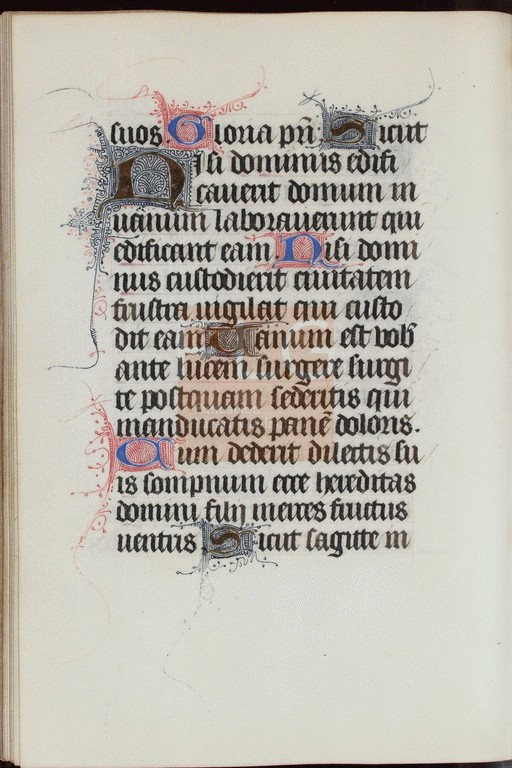 suos Gloria pr̄i Sicut
Nisi dominus edifi
cauerit domum in
uanum laborauerunt qui
edificant eam Nisi domi
nus custodierit ciuitatem
frustra uigilat qui custo
dit eam Uanum est vob̄
ante lucem surgere surgi
te postquam sederitis qui
manducatis panē doloris.
Cum dederit dilectis su
is sompnum ecce hereditas
domini filij merces fructus
uentris Sicut sagitte in